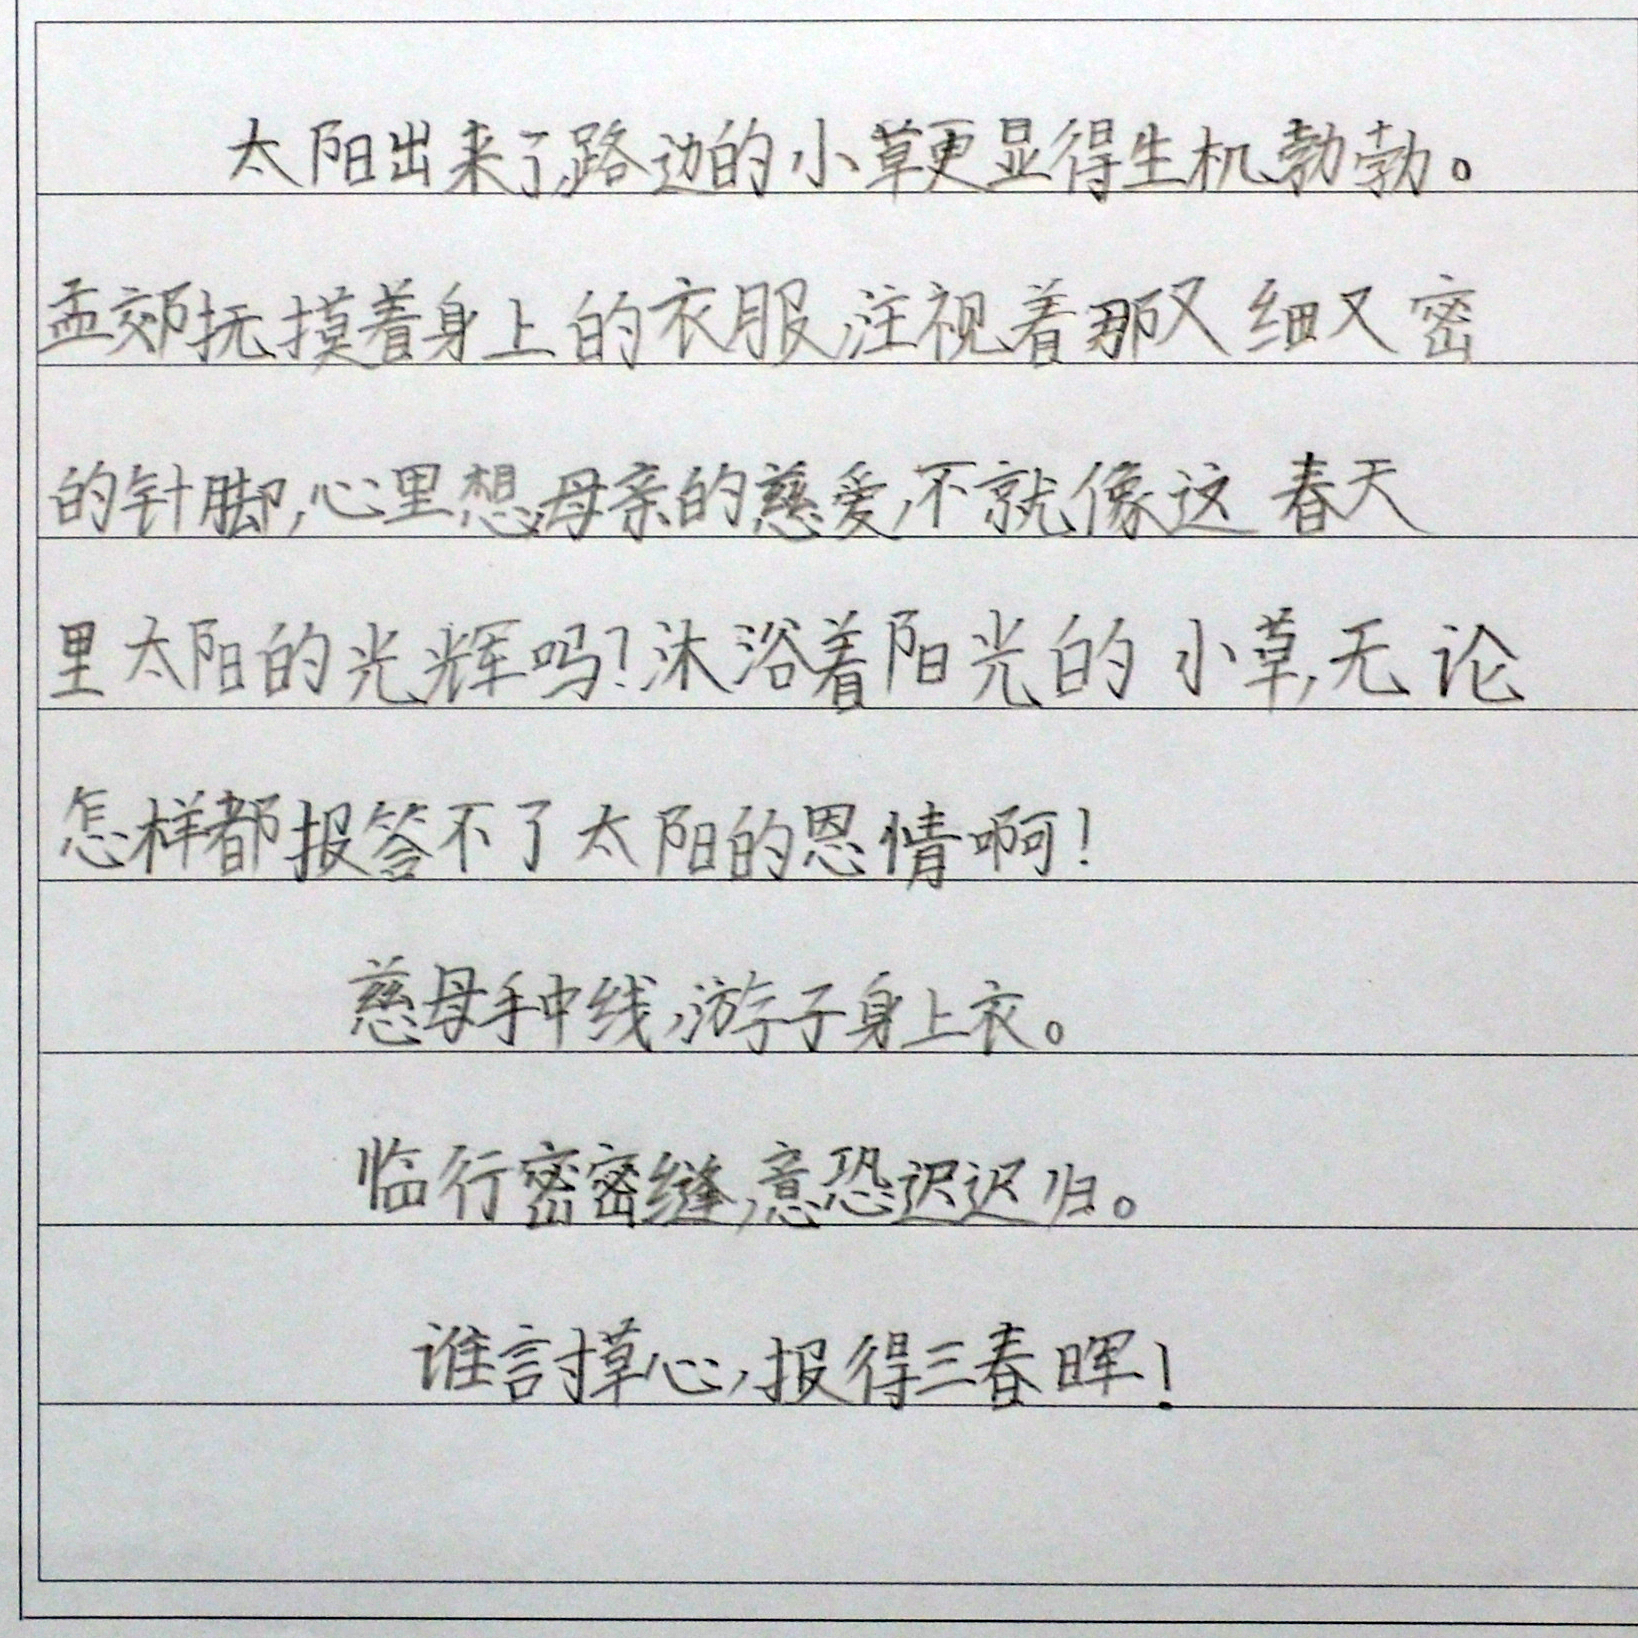 太阳出来了,路边的小草更显得生机勃勃。
孟郊抚摸着身上的衣服,注视着那又细又密
的针脚,心里想,母亲的慈爱,不就像这春天
里太阳的光辉吗?沐浴着阳光的小草,无论
怎样都报答不了太阳的恩情啊!
慈母手中线,游子身上衣。
临行密密缝,意恐迟迟归。
谁言寸草心,报得三春晖!